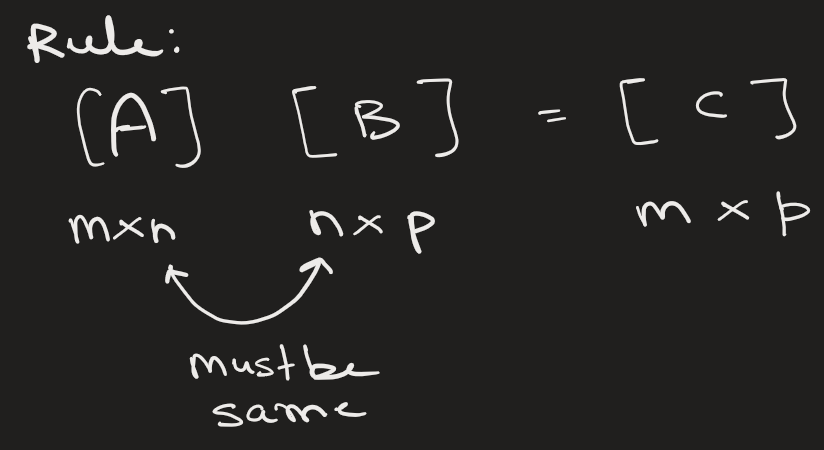 Rule:
[A] [B] = [C]
m×n n×p m×p
must be
same